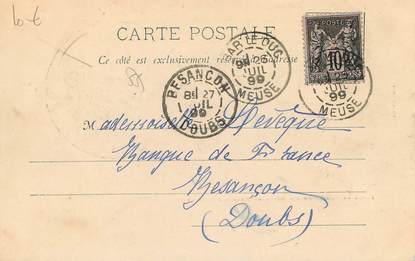 10-€
CARTE POSTALE
Ce côté est exclusivement réservé à l'adresse
POSTE
10
BAR-LE-DUC
26
JUIL
99
MEUSE
JUIL
99
MEUSE
BESANÇON
8E 27
JUIL
99
DOUBS
Mademoiselle Levêque
Banque de France
Besançon
(Doubs)